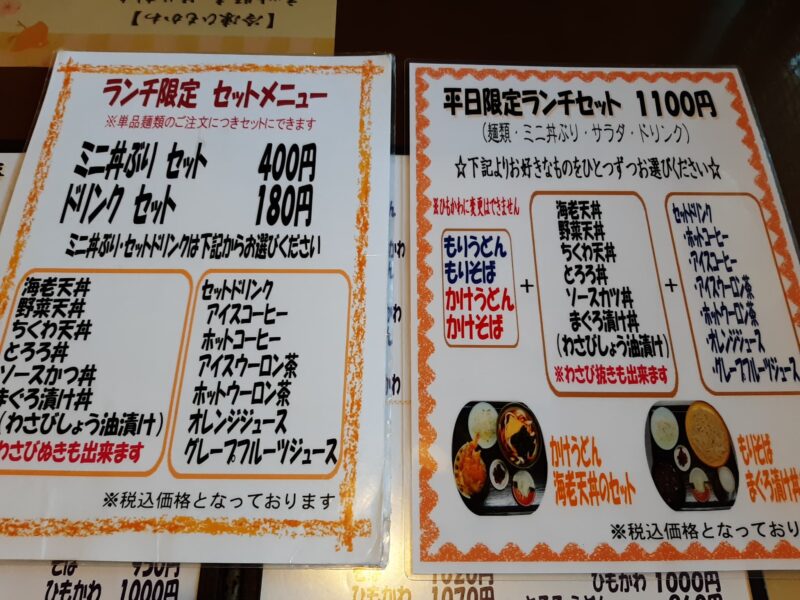 【冷凍ひもかわ】
ランチ限定 セットメニュー
※単品麺類のご注文につきセットにできます
ミニ丼ぶり セット 400円
ドリンク セット 180円
ミニ丼ぶり・セットドリンクは下記からお選びください
海老天丼
野菜天丼
ちくわ天丼
とろろ丼
ソースかつ丼
まぐろ漬け丼
(わさびしょう油漬け)
わさびぬきも出来ます
セットドリンク
アイスコーヒー
ホットコーヒー
アイスウーロン茶
ホットウーロン茶
オレンジジュース
グレープフルーツジュース
※税込価格となっております
平日限定ランチセット 1100円
(麺類・ミニ丼ぶり・サラダ・ドリンク)
☆下記よりお好きなものをひとつずつお選びください☆
※ひもかわに変更はできません
もりうどん
もりそば
かけうどん
かけそば
+
海老天丼
野菜天丼
ちくわ天丼
とろろ丼
ソースカツ丼
まぐろ漬け丼
(わさびしょう油漬け)
※わさび抜きも出来ます
+
セットドリンク
・ホットコーヒー
・アイスコーヒー
・アイスウーロン茶
・ホットウーロン茶
・オレンジジュース
・グレープフルーツジュース
かけうどん
海老天丼のセット
もりそば
まぐろ漬け丼
※税込価格となってお
そば 950円
ひもかわ 1000円
そば 1020円
ひもかわ 1070円
ひもかわ 1000円